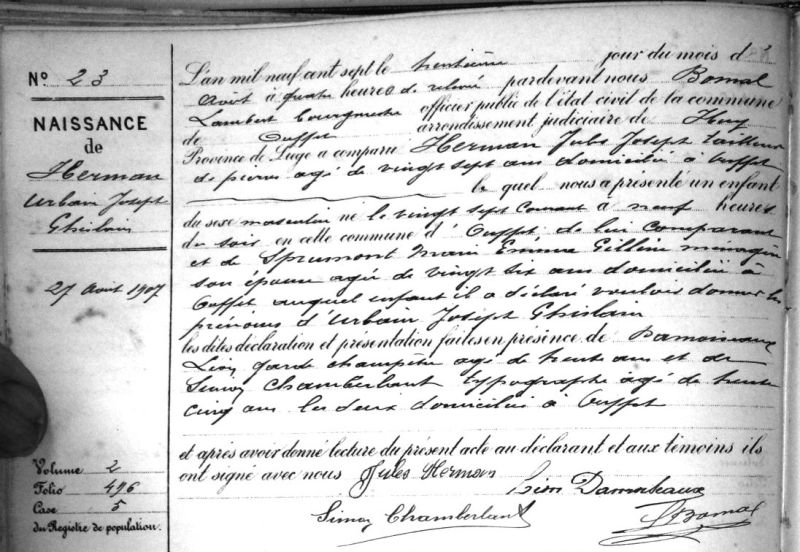 N° 23
NAISSANCE
de
Herman
Urbain Joseph
Ghislain
27 août 1907
Volume 2
Folio 496
Case 5
du Registre de population.
L'an mil neuf cent sept le trentième jour du mois d'
Août à quatre heures de relevé pardevant nous Bomal
Lambert officier public de l'état civil de la commune
de Ouffet arrondissement judiciaire de Huy
Province de Liége a comparu Herman Jules Joseph tailleur
de pierres agé de vingt sept ans domicilié à Ouffet
le quel nous a présenté un enfant
du sexe masculin né le vingt sept Courant à neuf heures
du soir en cette commune d'Ouffet de lui Comparant
et de Sprumont Marie Emma ménagère
son épouse agée de vingt six ans domiciliée à
Ouffet auquel enfant il a déclaré vouloir donner les
prénoms d'Urbain Joseph Ghislain
les dites déclaration et présentation faites en présence de Damoiseaux
Léon garde champêtre agé de trente ans et de
Simon Chamberlant typographe agé de trente
cinq ans les deux domiciliés à Ouffet
et après avoir donné lecture du présent acte au déclarant et aux témoins ils
ont signé avec nous Jules Herman
Léon Damoiseaux
Simon Chamberlant
LBomal